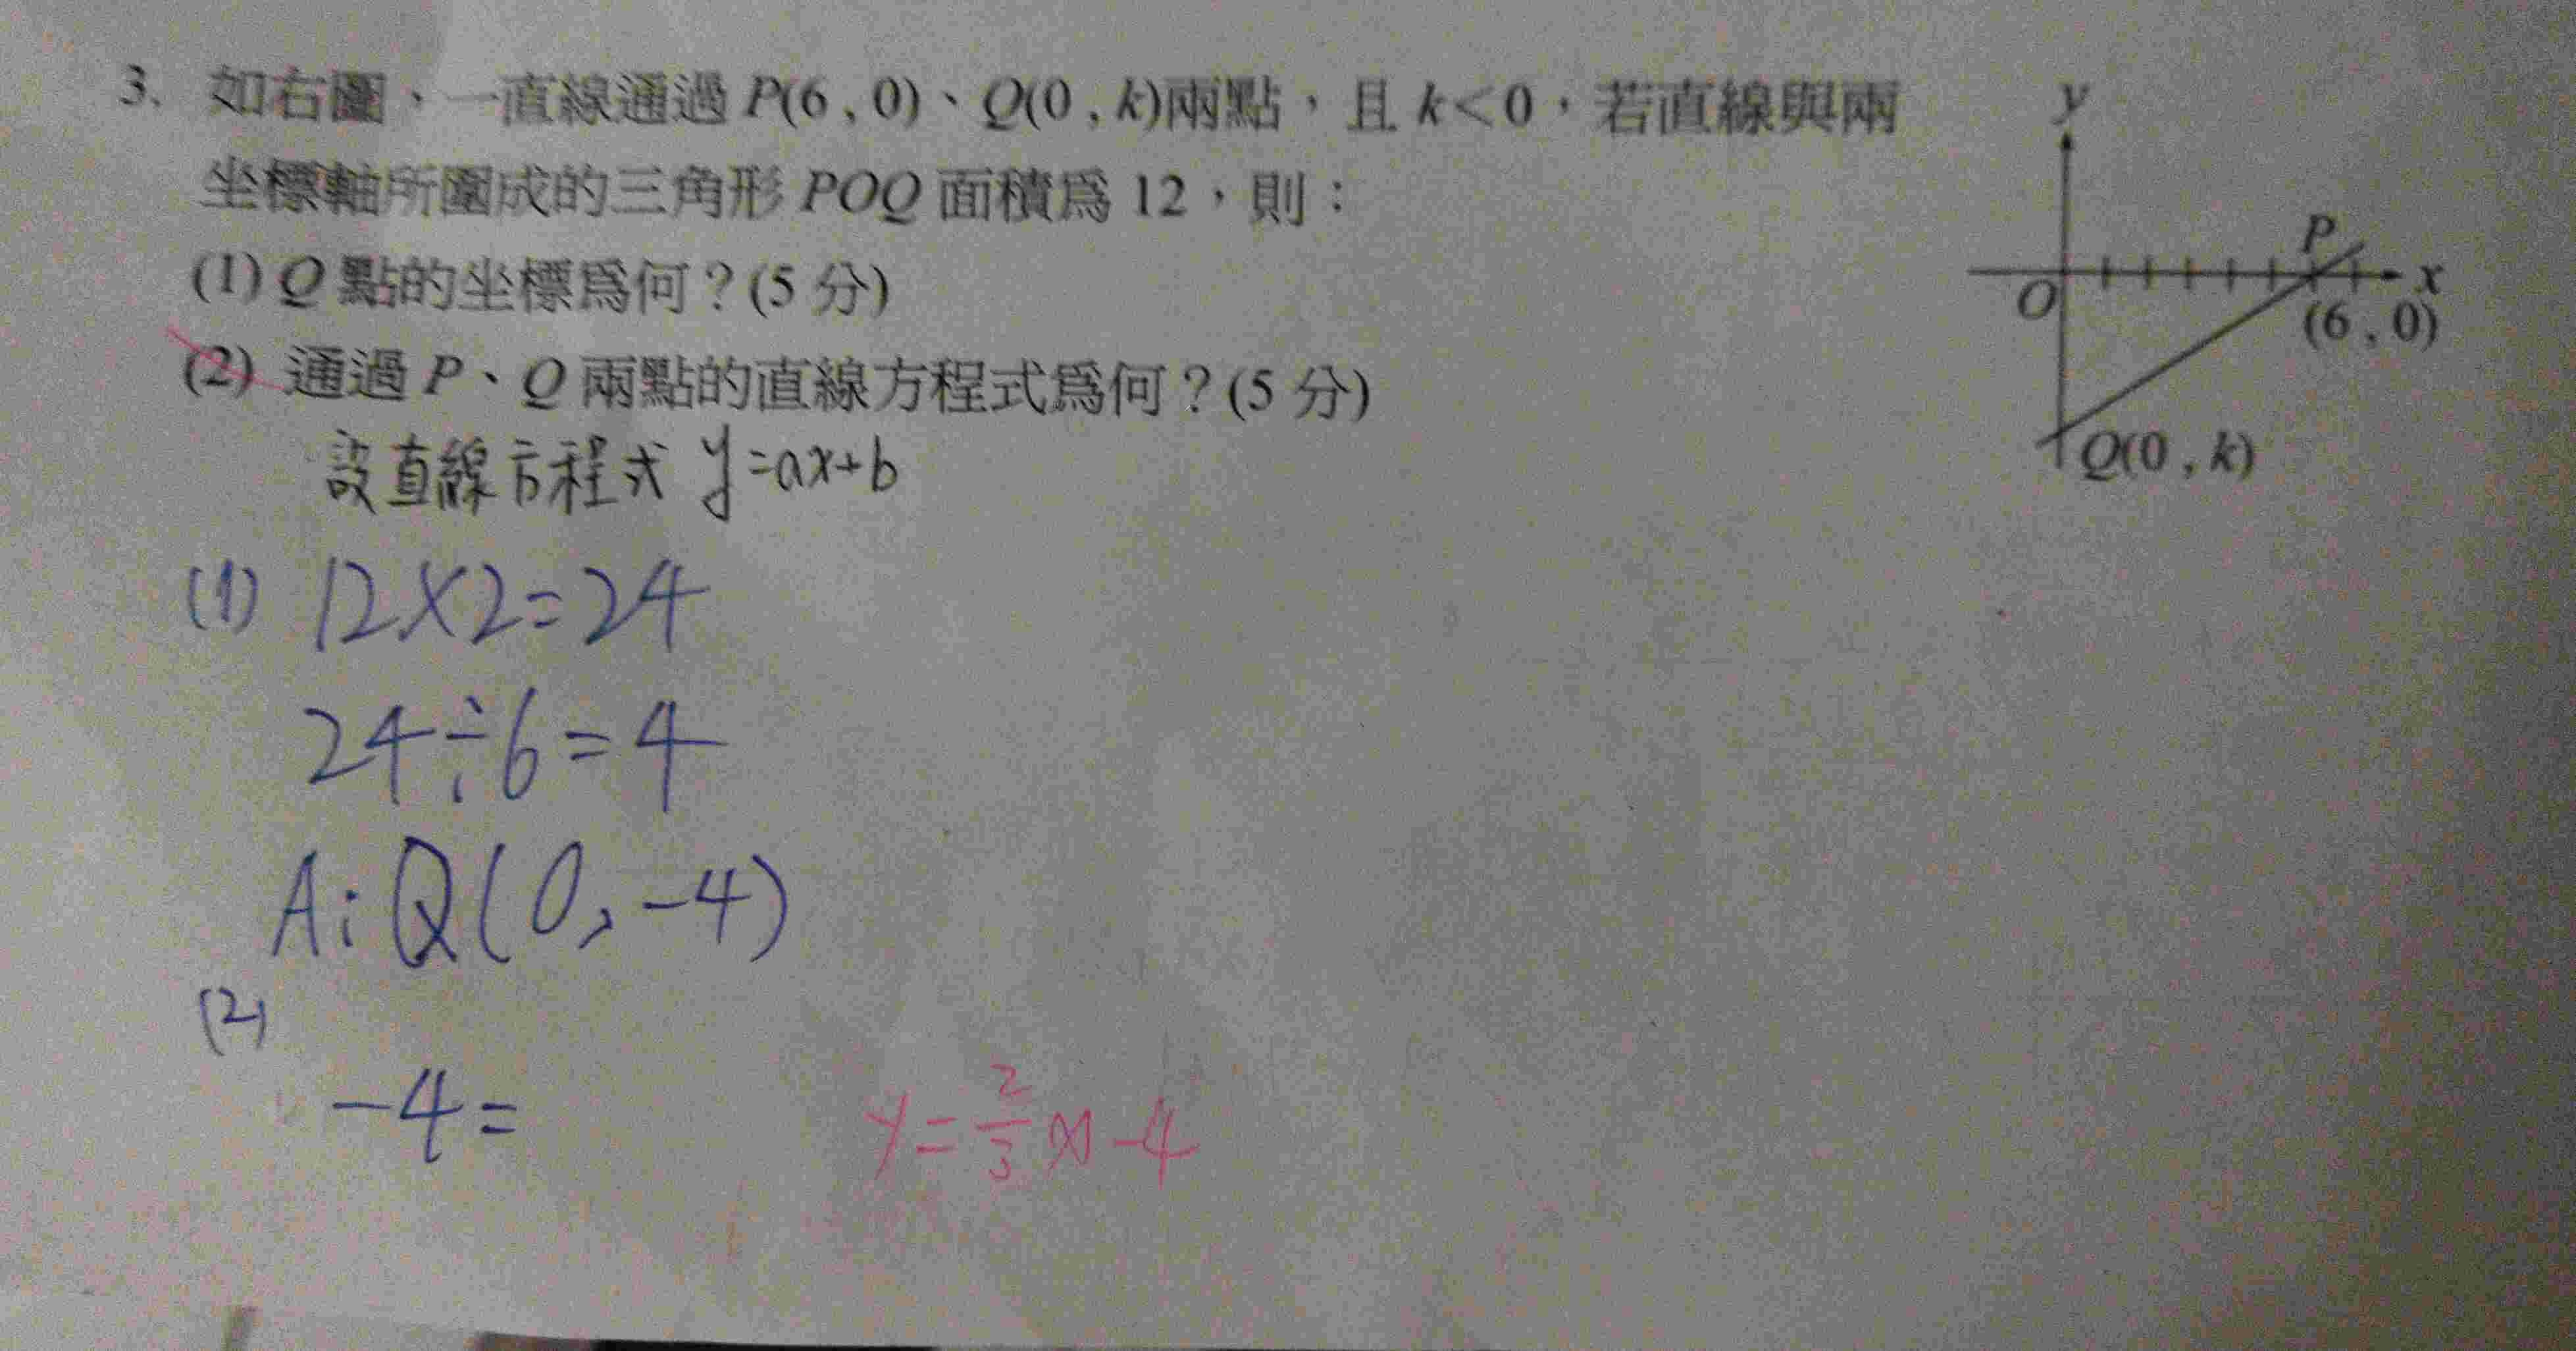 3. 如右圖、一直線通過 P(6 , 0)、Q(0 , k)兩點，且 k<0，若直線與兩
坐標軸所圍成的三角形 POQ 面積爲 12，則：
(1) Q 點的坐標爲何？(5 分)
(2) 通過 P、Q 兩點的直線方程式爲何？(5 分)
設直線方程式 y=ax+b
y
P
x
O
(6 , 0)
Q(0 , k)
(1) 12×2=24
24÷6=4
A: Q(0, -4)
(2)
-4=
y = 2/3 x - 4